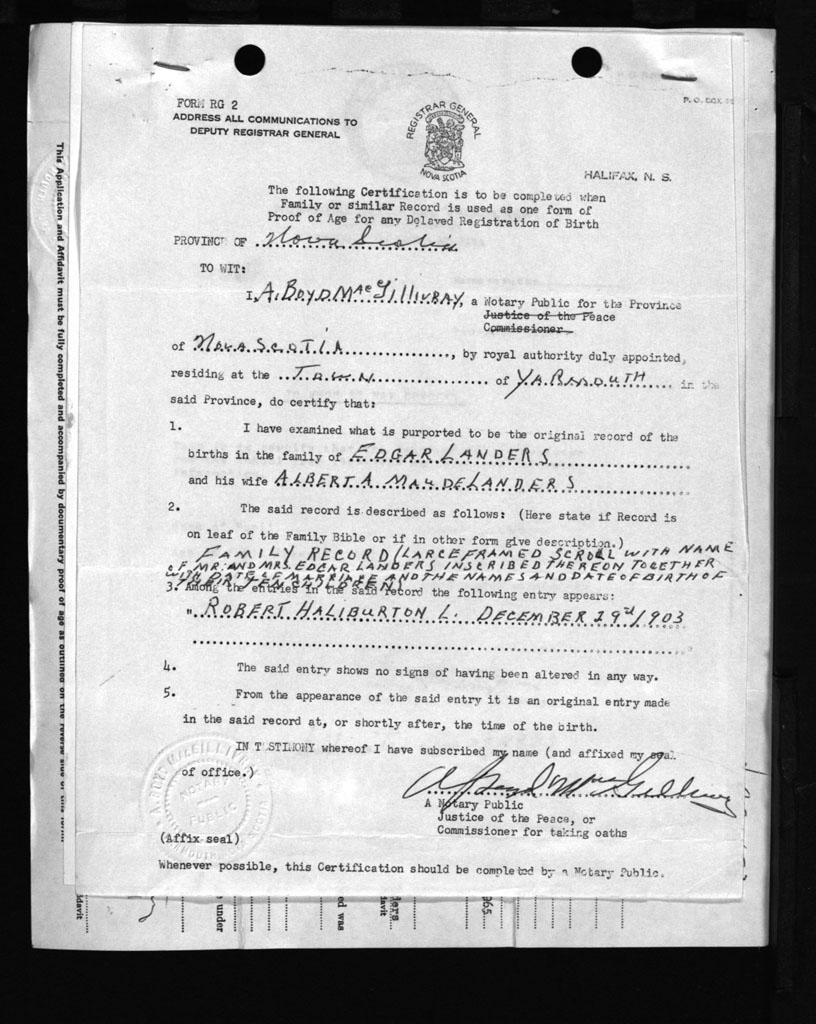 P. O. BOX
FORM RG 2
ADDRESS ALL COMMUNICATIONS TO
DEPUTY REGISTRAR GENERAL
REGISTRAR GENERAL
NOVA SCOTIA
HALIFAX, N. S.
The following Certification is to be completed when
Family or similar Record is used as one form of
Proof of Age for any Delayed Registration of Birth
PROVINCE OF Nova Scotia
TO WIT:
I, A. BOYD MacGILLIVRAY, a Notary Public for the Province
Justice of the Peace
Commissioner
of NOVA SCOTIA, by royal authority duly appointed,
residing at the TOWN of YARMOUTH in the
said Province, do certify that:
1. I have examined what is purported to be the original record of the
births in the family of EDGAR LANDERS
and his wife ALBERTA MAUDE LANDERS
2. The said record is described as follows: (Here state if Record is
on leaf of the Family Bible or if in other form give description.)
FAMILY RECORD (LARGE FRAMED SCROLL WITH NAME
OF MR. AND MRS. EDGAR LANDERS INSCRIBED THEREON TOGETHER
WITH DATE OF MARRIAGE AND THE NAMES AND DATE OF BIRTH OF
THEIR TEN CHILDREN)
3. Among the entries in the said record the following entry appears:
" ROBERT HALIBURTON L. DECEMBER 29d/1903
4. The said entry shows no signs of having been altered in any way.
5. From the appearance of the said entry it is an original entry made
in the said record at, or shortly after, the time of the birth.
IN TESTIMONY whereof I have subscribed my name (and affixed my seal
of office.)
A Boyd MacGillivray
A Notary Public
Justice of the Peace, or
Commissioner for taking oaths
(Affix seal)
A. BOYD MacGILLIVRAY
NOTARY
PUBLIC
Whenever possible, this Certification should be completed by a Notary Public.
This Application and Affidavit must be fully completed and accompanied by documentary proof of age as outlined on the reverse side of this form
idavit
under
ed was
ders
davit
965